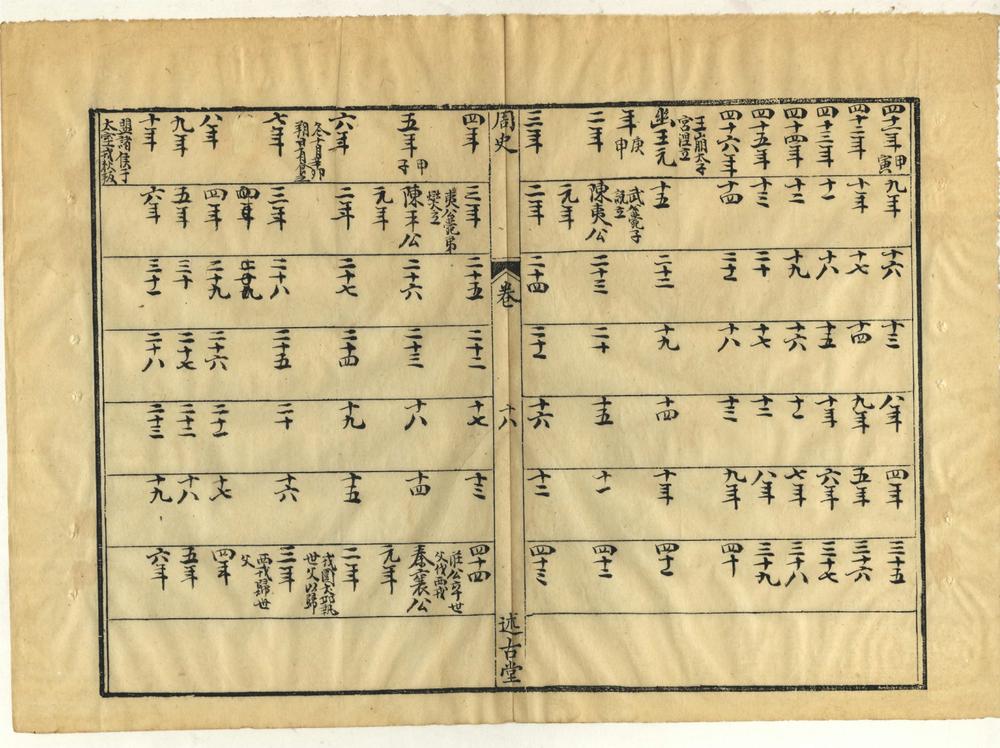 四十一年甲寅
四十二年
四十三年
四十四年
四十五年
四十六年
王崩太子
宮湦立
幽王元
年庚申
二年
三年
九年
十年
十一
十二
十三
十四
十五
武公薨子
說立
陳夷公
元年
二年
十六
十七
十八
十九
二十
二十一
二十二
二十三
二十四
十三
十四
十五
十六
十七
十八
十九
二十
二十一
八年
九年
十年
十一
十二
十三
十四
十五
十六
四年
五年
六年
七年
八年
九年
十年
十一
十二
三十五
三十六
三十七
三十八
三十九
四十
四十一
四十二
四十三
周史
卷
十八
述古堂
四年
五年甲子
六年
冬十月辛卯
朔日有食之
七年
八年
九年
十年
盟諸侯于
太室戎狄叛
三年
夷公薨弟
燮立
陳平公
元年
二年
三年
四年
五年
六年
二十五
二十六
二十七
二十八
二十九
三十
三十一
二十二
二十三
二十四
二十五
二十六
二十七
二十八
十七
十八
十九
二十
二十一
二十二
二十三
十三
十四
十五
十六
十七
十八
十九
四十四
莊公卒世
父伐西戎
秦襄公
元年
二年
戎圍犬邱執
世父以歸
三年
西戎歸世
父
四年
五年
六年